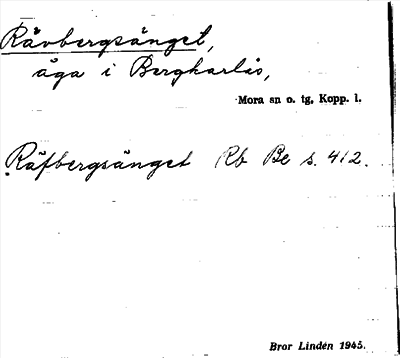 Rävbergsänget,
äga i Bergkarlås,
Mora sn o. tg, Kopp. l.
Räfbergsänget Rb Be s. 412.
Bror Lindén 1945.